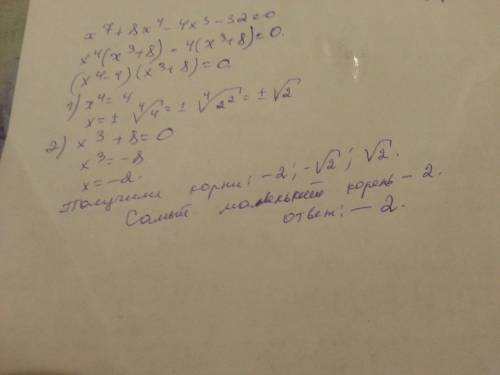 x⁷+8x⁴-4x³-32=0
x⁴(x³+8)-4(x³+8)=0.
(x⁴-4)(x³+8)=0
1) x⁴=4
x=± ⁴√4=± ⁴√2²=±√2
2) x³+8=0
x³=-8
x=-2.
Получили корни: -2; -√2; √2.
Самый маленький корень -2.
ответ: -2.